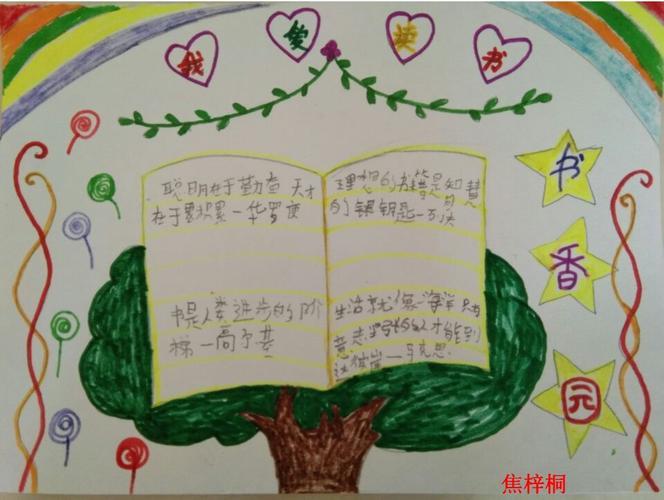 我 爱 读 书
聪明在于勤奋 天才
在于积累一华罗庚
书是人类进步的阶
梯一高尔基
理想的书籍是智慧
的钥匙一
生活就像海洋只有
意志坚强的人才能到
达彼岸一马克思.
书
香
园
焦梓桐